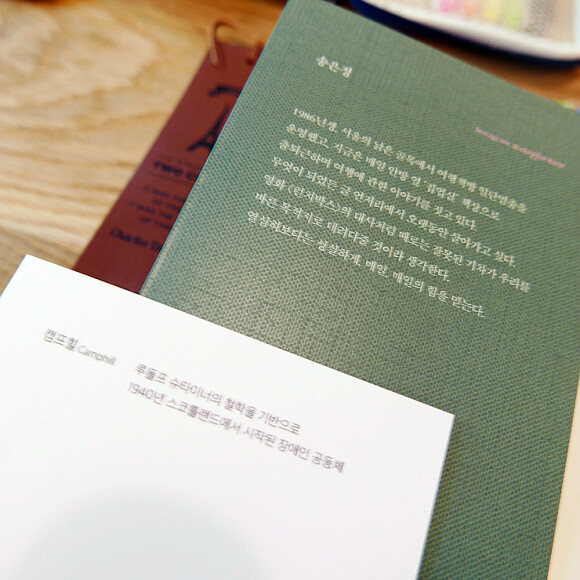 송은정
1986년생. 서울의 낡은 골목에서 여행책방 일단멈춤을
운영했고, 지금은 매일 안방 옆 '집업실' 책상으로
출퇴근하며 여행에 관한 이야기를 짓고 있다.
무엇이 되었든 글 언저리에서 오랫동안 살아가고 싶다.
영화 〈런치박스〉의 대사처럼 때로는 잘못된 기차가 우리를
바른 목적지로 데려다줄 것이라 생각한다.
열심히보다는 성실하게, 매일, 매일의 힘을 믿는다.
캠프힐 Camphill
루돌프 슈타이너의 철학을 기반으로
1940년 스코틀랜드에서 시작된 장애인 공동체